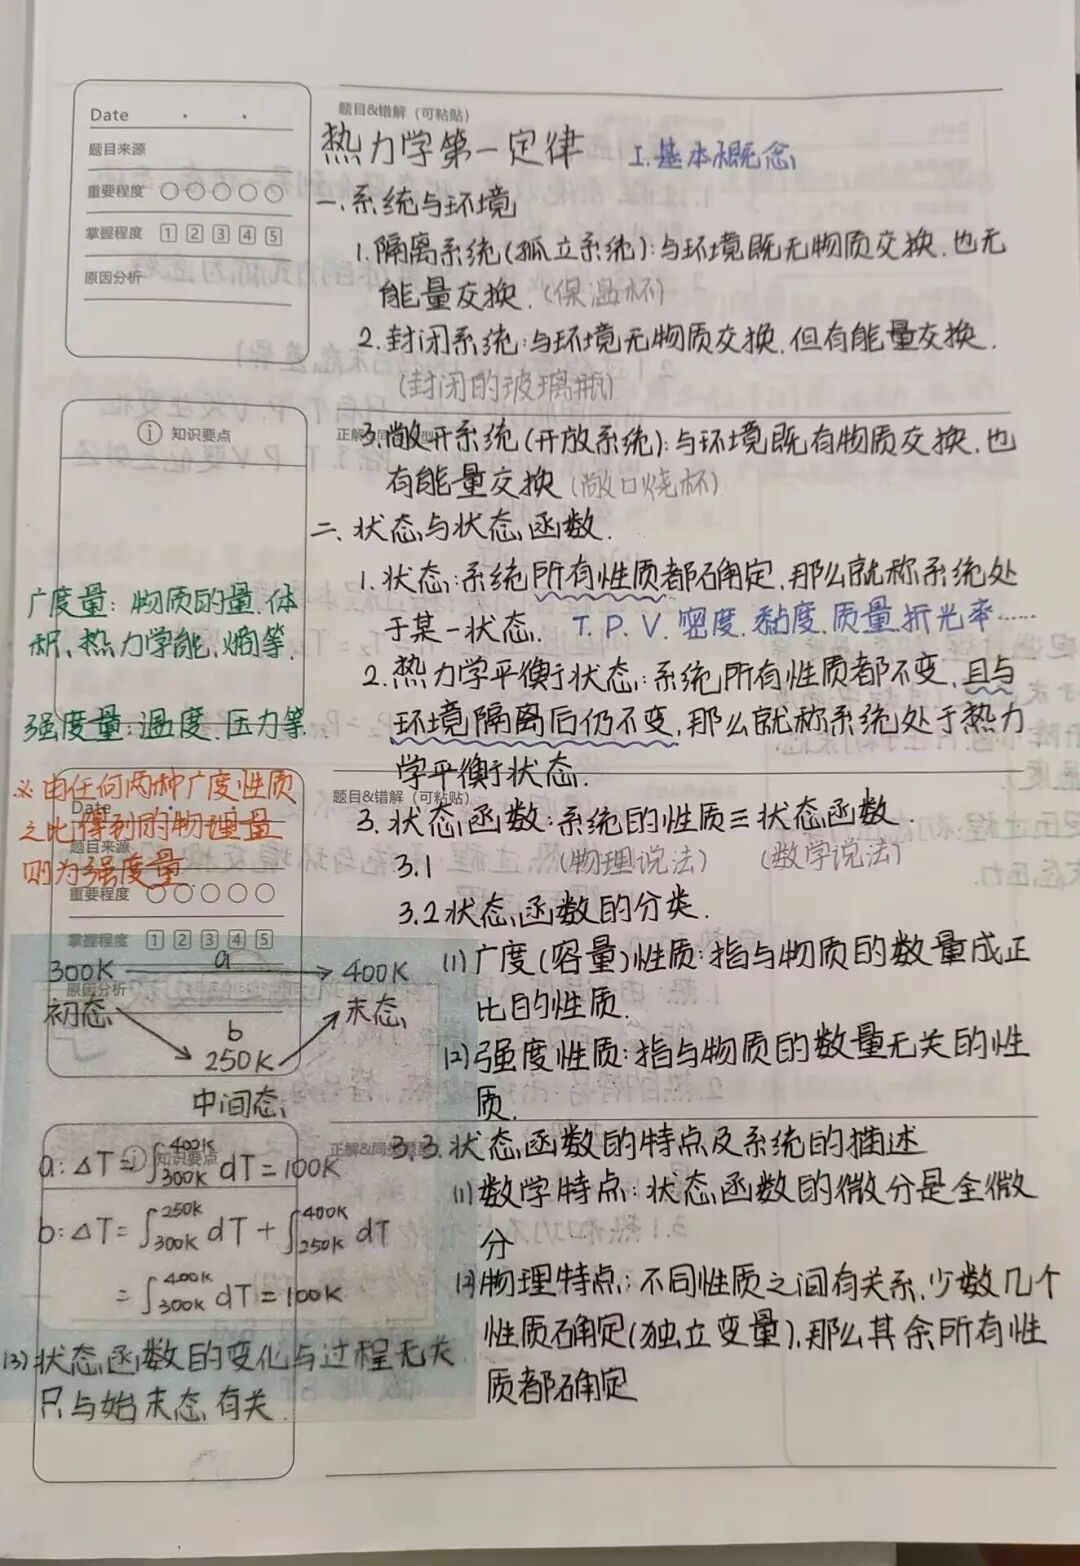 Date
题目来源
重要程度
掌握程度 1 2 3 4 5
原因分析
题目&错解（可粘贴）
热力学第一定律 I.基本概念
一、系统与环境
1.隔离系统(孤立系统):与环境既无物质交换.也无
能量交换.(保温杯)
2.封闭系统:与环境无物质交换.但有能量交换.
(封闭的玻璃瓶)
知识要点
3.敞开系统(开放系统):与环境既有物质交换,也
有能量交换(敞口烧杯)
二、状态与状态函数.
1.状态:系统所有性质都确定,那么就称系统处
于某一状态. T.P.V.密度.黏度.质量.折光率……
2.热力学平衡状态:系统所有性质都不变,且与
环境隔离后仍不变,那么就称系统处于热力
学平衡状态.
广度量:物质的量.体
积、热力学能、熵等.
强度量:温度.压力等.
※由任何两种广度性质
之比得到的物理量
则为强度量.
Date
题目来源
重要程度
掌握程度 1 2 3 4 5
原因分析
题目&错解（可粘贴）
3.状态函数:系统的性质≡状态函数.
3.1 (物理说法) (数学说法)
3.2状态函数的分类.
(1)广度(容量)性质:指与物质的数量成正
比的性质.
(2)强度性质:指与物质的数量无关的性
质.
300K a 400K
初态 末态
b
250K
中间态
知识要点
正解&同类题型
3.3.状态函数的特点及系统的描述
(1)数学特点:状态函数的微分是全微
分
(2)物理特点:不同性质之间有关系,少数几个
性质确定(独立变量),那么其余所有性
质都确定
a:△T=∫300K 400K dT=100K
b:△T=∫300K 250K dT+∫250K 400K dT
=∫300K 400K dT=100K
(3)状态函数的变化与过程无关.
只与始末态有关.